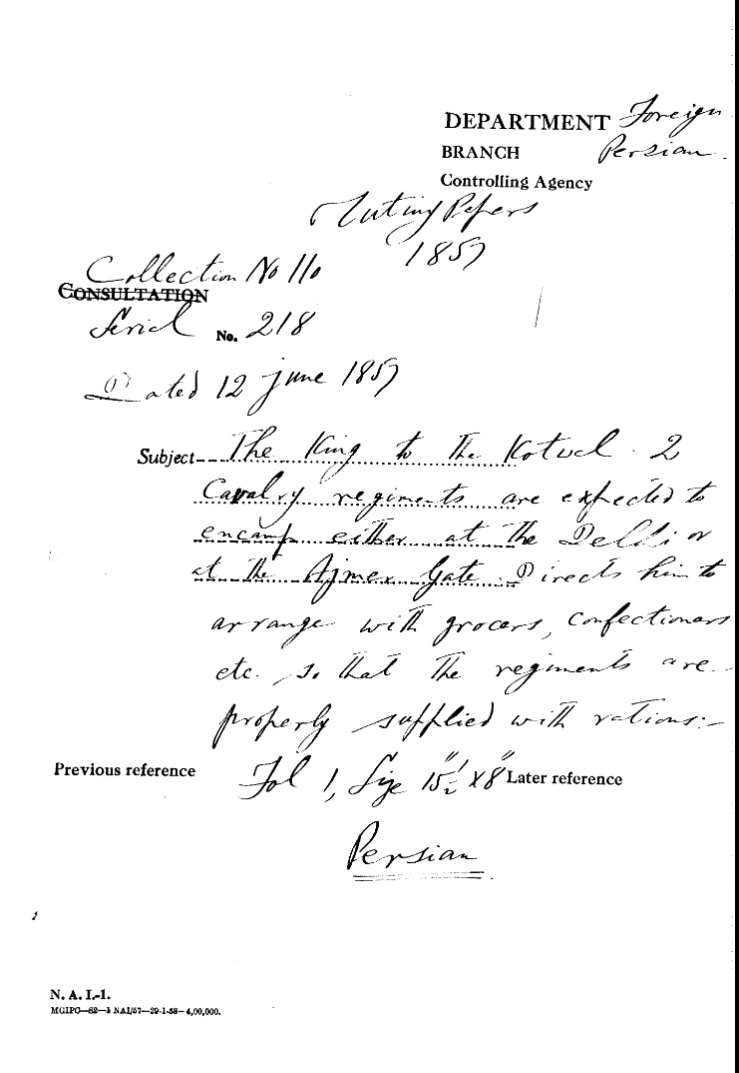 DEPARTMENT Foreign
BRANCH Persian
Controlling Agency
Mutiny Papers
1857
Collection No 110
CONSULTATION
Serial No. 218
Dated 12 June 1857
Subject The King to the Kotwal. 2
Cavalry regiments are expected to
encamp either at the Delhi or
at the Ajmer Gate. Directs him to
arrange with grocers, confectioners
etc. so that the regiments are
properly supplied with rations:-
Previous reference Fol 1, Size 15½" x 8" Later reference
Persian
N. A. I.-1.
MGIPC—62—1 NAI/57—29-1-58—4,00,000.